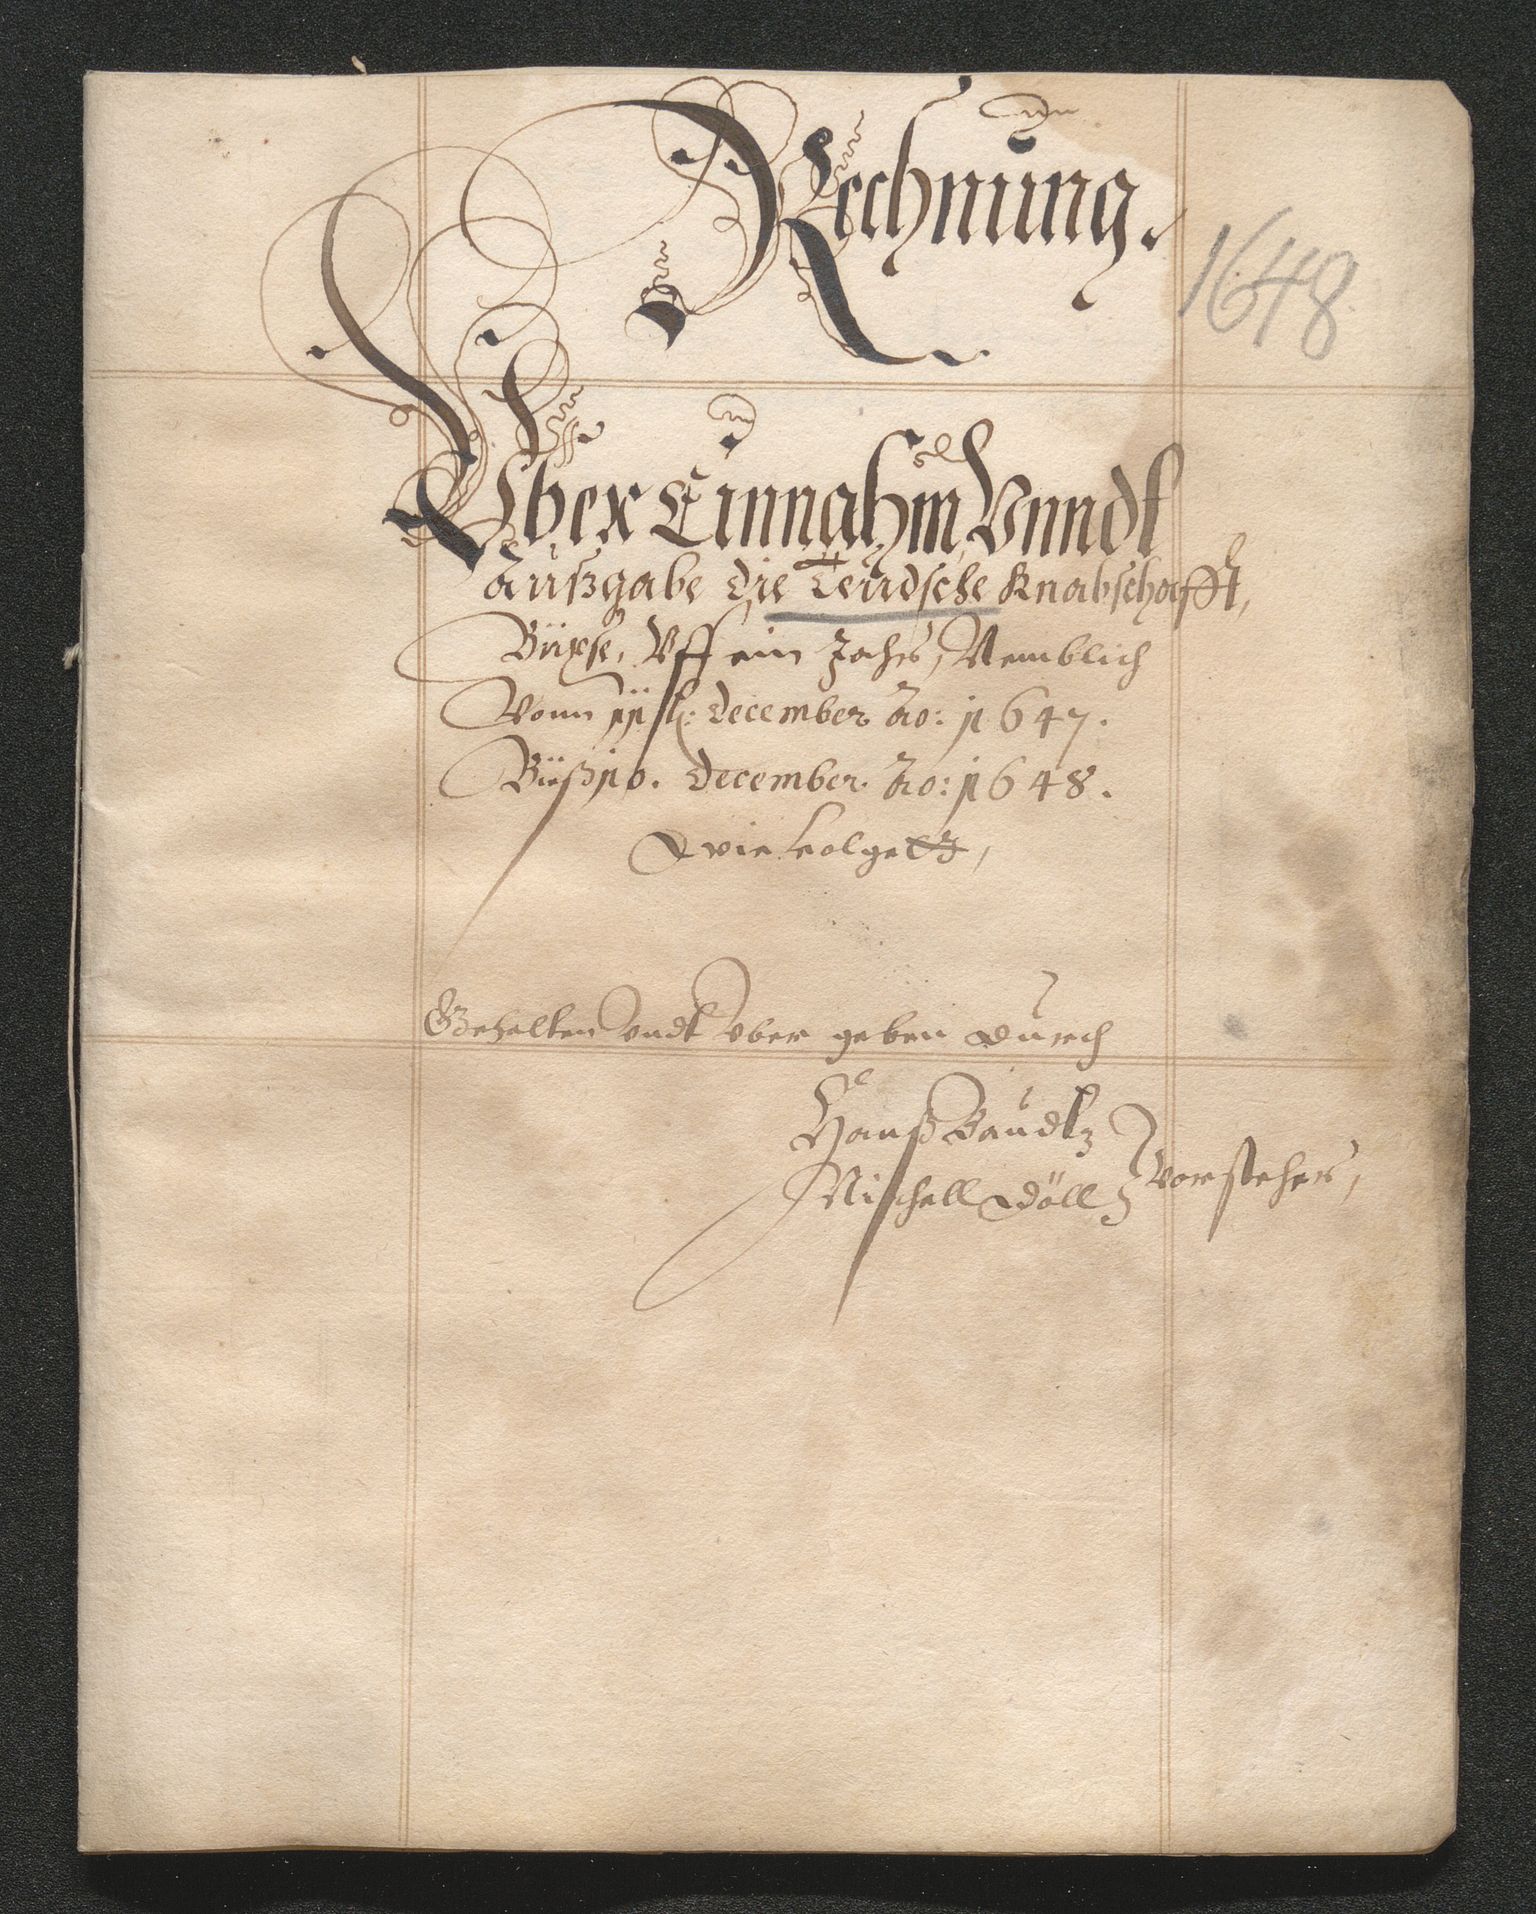 Rechnung.
1648
Vber Einnahm, Vnndt
Außgabe die Teudsche Knabschafft,
Büxse, Vff ein Jahr, Nemblich
Vonn december Ao: 1647.
Bieß 10. december Ao: 1648.
wie folgett,
Gehalten vndt vber geben durch
Hanß Baudtz
Michell Döll Vorsteher,